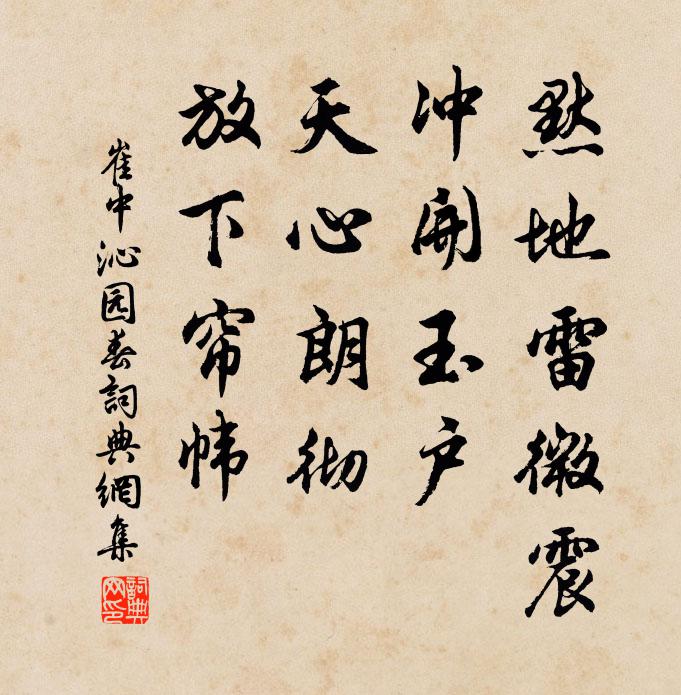 默地雷微震
冲開玉户
天心朗彻
放下帘帏
崔中沁园春詞典網集
詞典网印